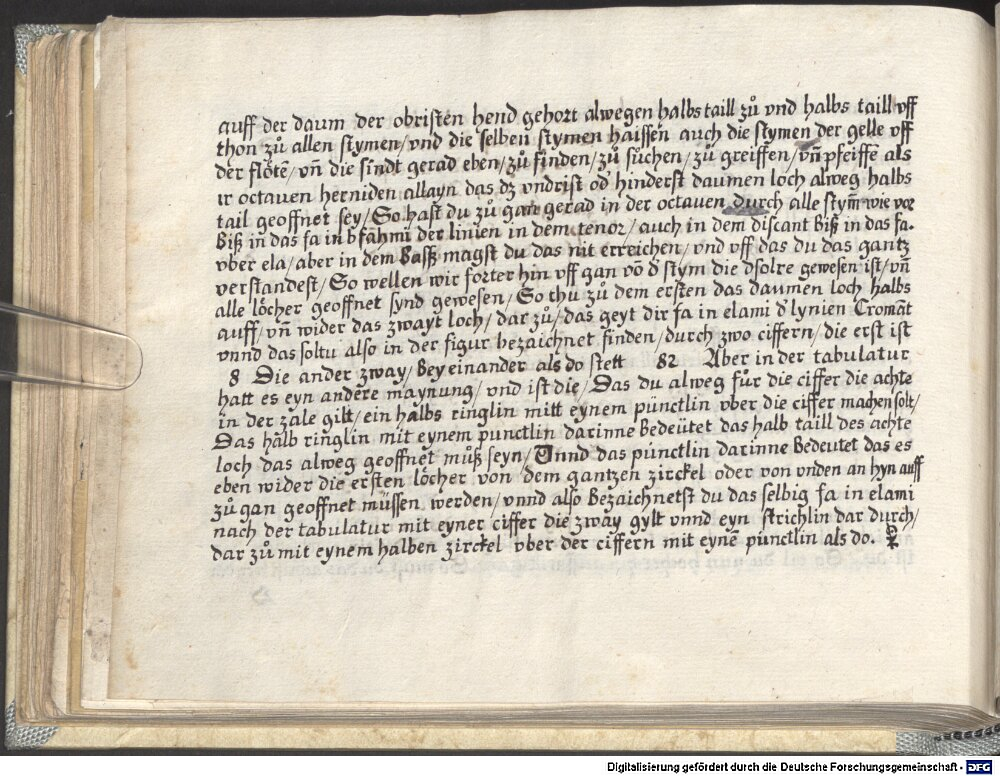 auff der daum der obristen hend gehort alwegen halbs taill zů vnd halbs taill vff
thon zů allen stymen/vnd die selben stymen haissen auch die stymen der gelle vff
der flöte/ vn̄ die sindt gerad eben/zů finden/zů sůchen/zů greiffen/vn̄ pfeiffē als
ir octauen herniden allayn das dz vndrist od̕ hinderst daumen loch alweg halbs
tail geoffnet sey/So hast du zů gan gerad in der octauen durch alle stym̄ wie vor
Biß in das fa in b fahmi der linien in dem tenor/auch in dem discant Biß in das fa.
vber ela/aber in dem Bassß magst du das nit erreichen/vnd vff das du das gantz
verstandest/So wellen wir forter hin vff gan vō d̕ stym die dsolre gewesen ist/vn̄
alle löcher geoffnet synd gewesen/So thu zů dem ersten das daumen loch halbs
auff/vn̄ wider das zwayt loch/dar zů/das geyt dir fa in elami d̕ lynien Cromāt
vnnd das soltu also in der figur bezaichnet finden/durch zwo ciffern/die erst ist
8 Die ander zway/Bey einander als do stett 82 Aber in der tabulatur
hatt es eyn andere maynung/vnd ist die/Das du alweg für die ciffer die achte
in der zale gilt/ein halbs ringlin mitt eynem pünctlin vber die ciffer machen solt/
Das halb ringlin mit eynem punctlin darinne Bedeütet das halb taill des achte
loch das alweg geoffnet můß seyn/Vnnd das pünctlin darinne Bedeutet das es
eben wider die ersten löcher von dem gantzen zirckel oder von vnden an hyn auff
zů gan geoffnet müssen werden/vnnd also Bezaichnetst du das selbig fa in elami
nach der tabulatur mit eyner ciffer die zway gylt vnnd eyn strichlin dar durch/
dar zů mit eynem halben zirckel vber der ciffern mit eynē punctlin als do. 2
Digitalisierung gefördert durch die Deutsche Forschungsgemeinschaft - DFG